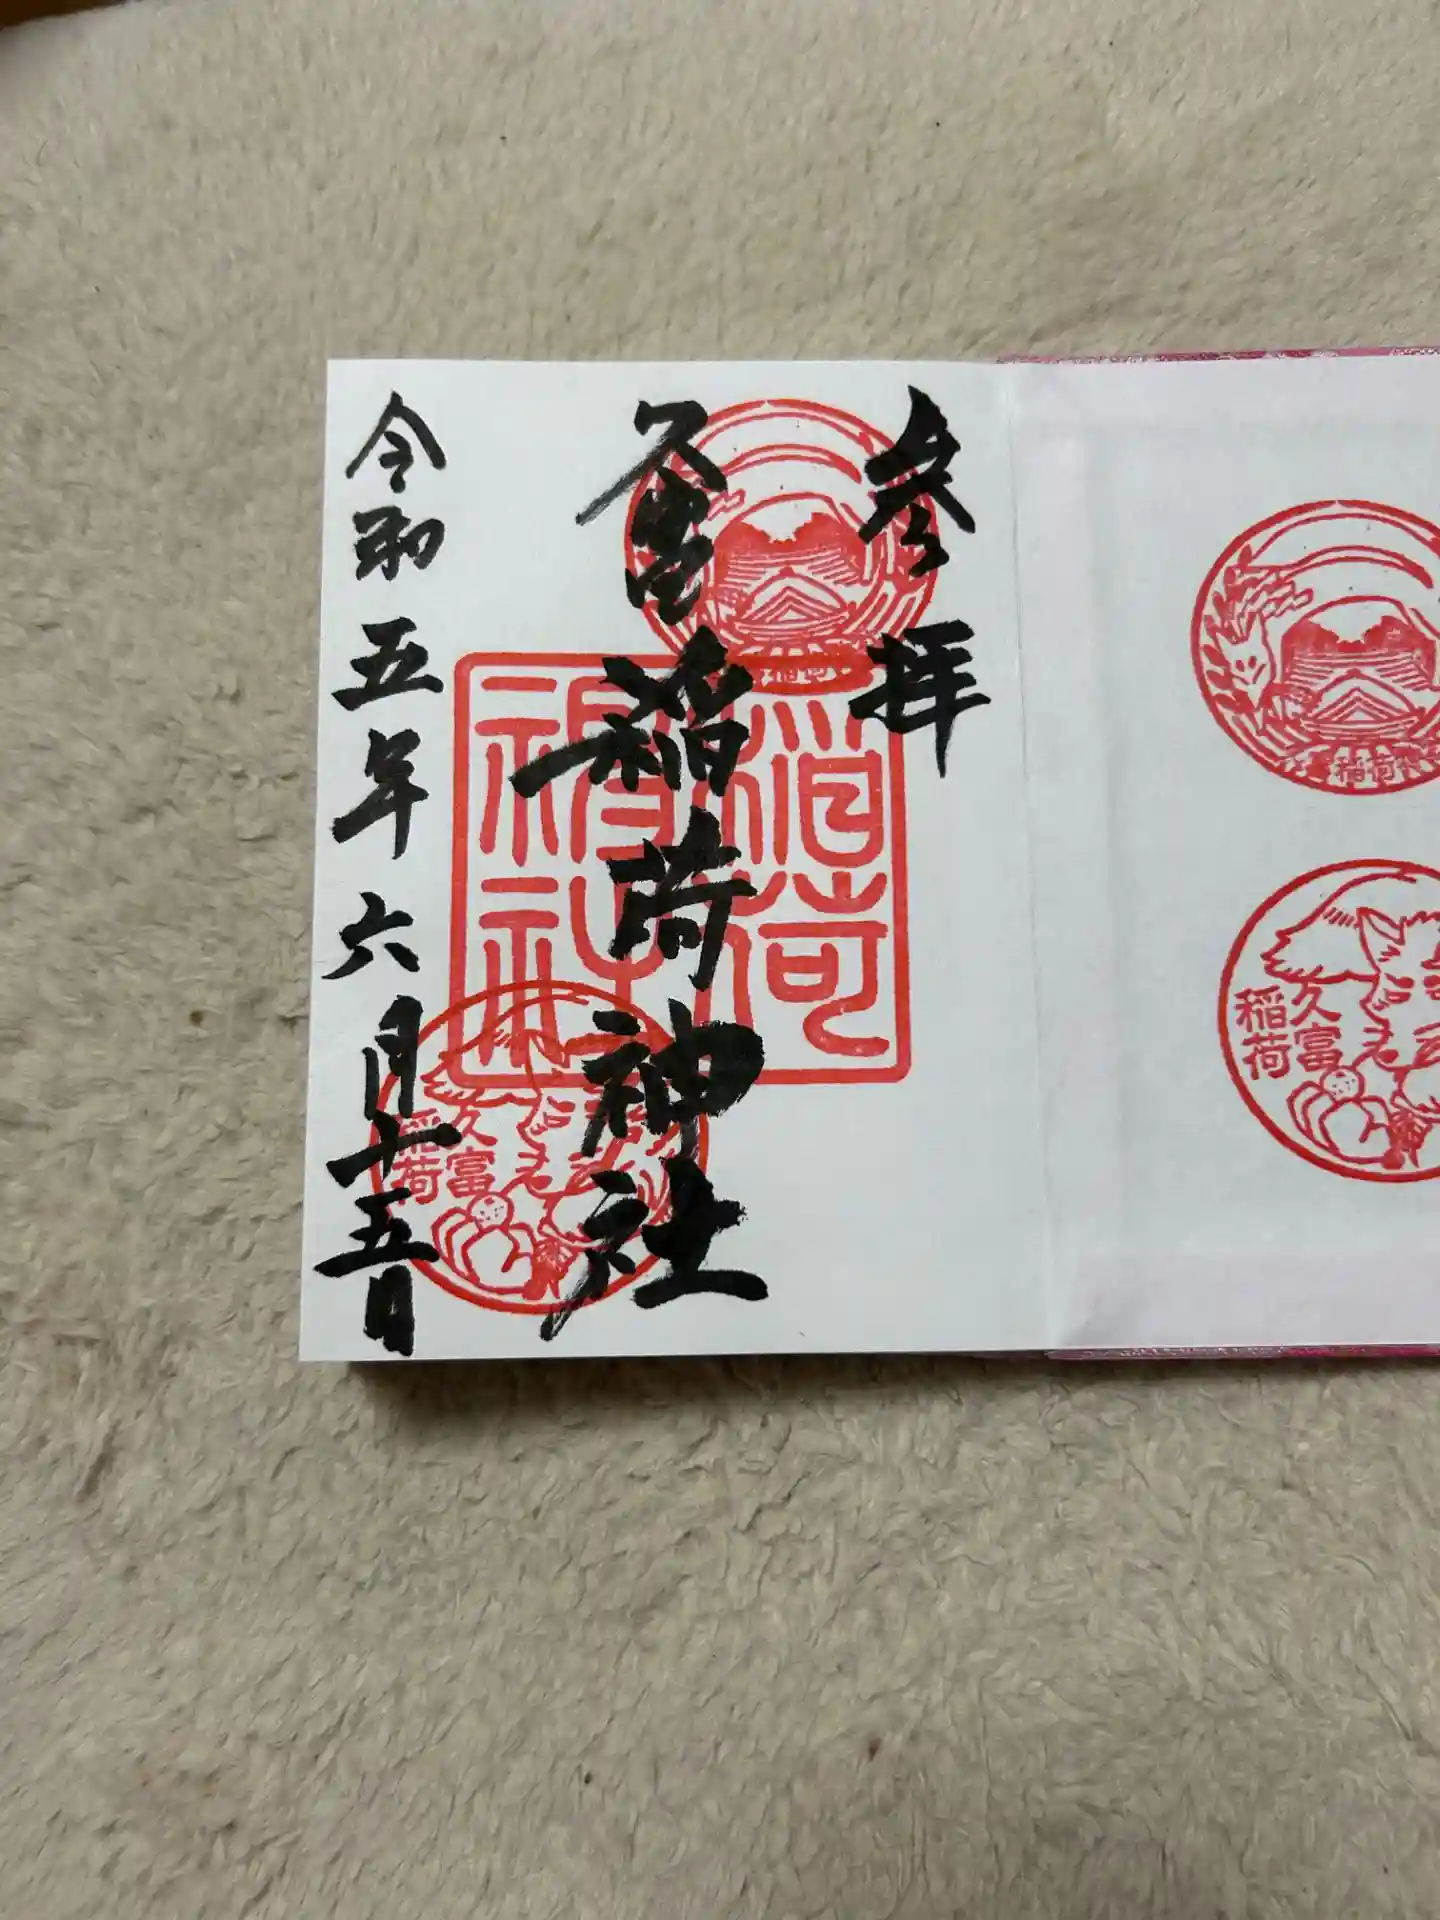 参拝
久富稲荷神社
令和五年六月十五日
稲荷
神社
久富
稲荷
稲荷
久富
稲荷